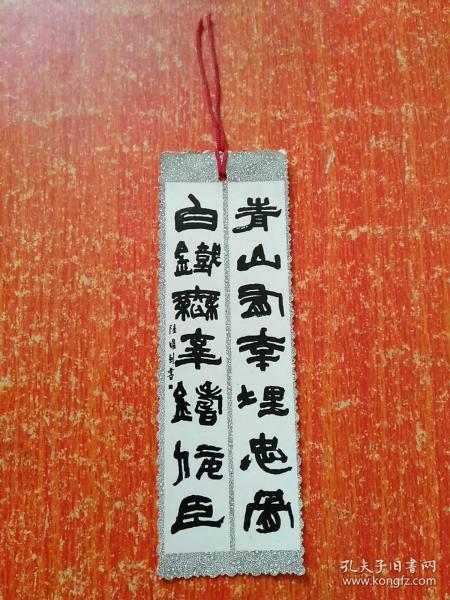 青山有幸埋忠骨
白鐵無辜鑄佞臣
孔夫子旧书网
www.kongfz.com